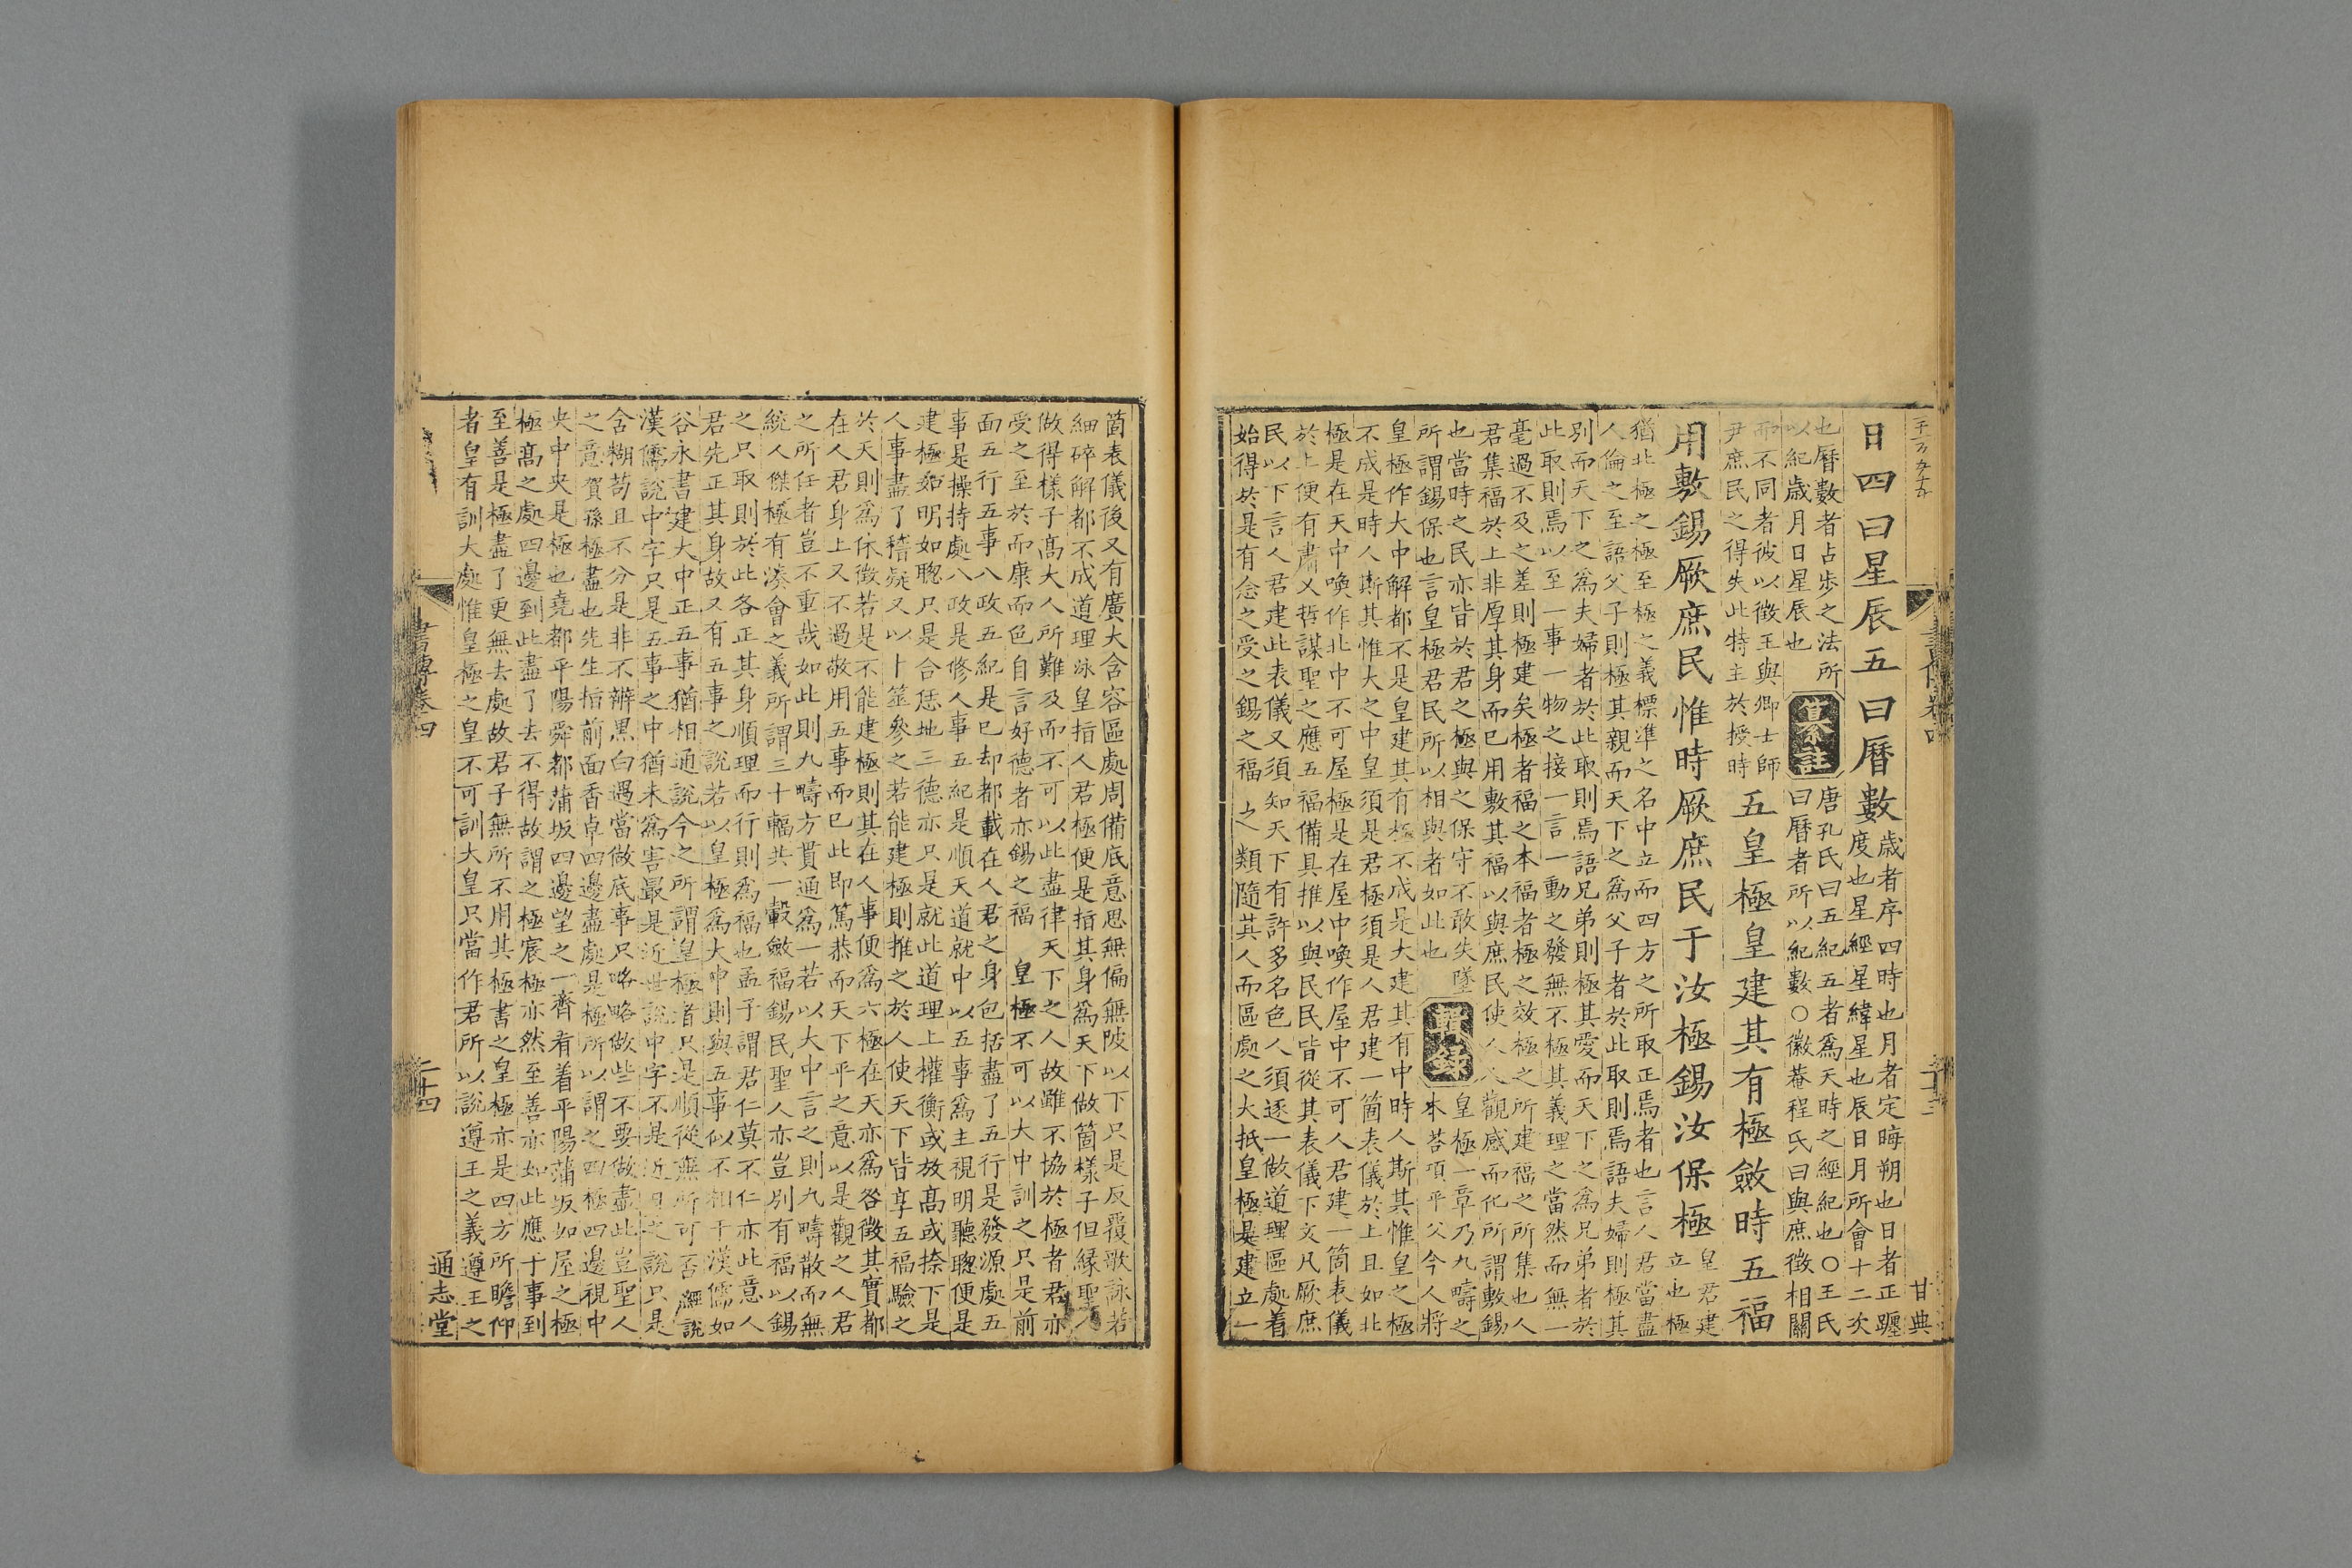 日四曰星辰五曰曆數
歲者序四時也月者定晦朔也日者正躔
度也星經星緯星也辰日月所會十二次
也曆數者占步之法所
以紀歲月日星辰也
纂註
唐孔氏曰五紀五者爲天時之經紀也○王氏
曰曆者所以紀數○徽菴程氏曰與庶徵相關
而不同者彼以徵王與卿士師
尹庶民之得失此特主於授時
五皇極皇建其有極斂時五福
用敷錫厥庶民惟時厥庶民于汝極錫汝保極
皇君建
立也極
猶北極之極至極之義標準之名中立而四方之所取正焉者也言人君當盡
人倫之至語父子則極其親而天下之爲父子者於此取則焉語夫婦則極其
別而天下之爲夫婦者於此取則焉語兄弟則極其愛而天下之爲兄弟者於
此取則焉以至一事一物之接一言一動之發無不極其義理之當然而無一
毫過不及之差則極建矣極者福之本福者極之效極之所建福之所集也人
君集福於上非厚其身而已用敷其福以與庶民使人人觀感而化所謂敷錫
也當時之民亦皆於君之極與之保守不敢失墜
所謂錫保也言皇極君民所以相與者如此也
輯錄
皇極一章乃九疇之
本荅項平父今人將
皇極作大中解都不是皇建其有極不成是大建其有中時人斯其惟皇之極
不成是時人斯其惟大之中皇須是君極須是人君建一箇表儀於上且如北
極是在天中喚作北中不可屋極是在屋中喚作屋中不可人君建一箇表儀
於上便有肅乂哲謀聖之應五福備具推以與民民皆從其表儀下文凡厥庶
民以下言人君建此表儀又須知天下有許多名色人須逐一做道理區處着
始得於是有念之受之錫之福之類隨其人而區處之大抵皇極是建立一
甘典
箇表儀後又有廣大含容區處周備底意思無偏無陂以下只是反覆歌詠若
細碎解都不成道理泳皇指人君極便是指其身爲天下做箇樣子但緣聖人
做得樣子高大人所難及而不可以此盡律天下之人故雖不協於極者君亦
受之至於而康而色自言好德者亦錫之福 皇極不可以大中訓之只是前
面五行五事八政五紀是已却都載在人君之身包括盡了五行是發源處五
事是操持處八政是修人事五紀是順天道就中以五事爲主視明聽聰便是
建極如明如聰只是合恁地三德亦只是就此道理上權衡或放高或捺下是
人事盡了稽疑又以卜筮參之若能建極則推之於人使天下皆享五福驗之
於天則爲休徵若是不能建極則其在人事便爲六極在天亦爲咎徵其實都
在人君身上又不過敬用五事而已此即篤恭而天下平之意以是觀之人君
之所任者豈不重哉如此則九疇方貫通爲一若以大中言之則九疇散而無
統人傑 極有湊會之義所謂三十輻共一轂斂福錫民聖人亦豈別有福以錫
之只取則於此各正其身順理而行則爲福也孟子謂君仁莫不仁亦此意人
君先正其身故又有五事之說若以皇極爲大中則與五事似不相干漢儒如
谷永書建大中正五事猶相通說今之所謂皇極者只是順從無所可否經說
漢儒說中字只是五事之中猶未爲害最是近世說中字不是近日之說只是
含糊苟且不分是非不辨黑白遇當做底事只略略做些不要做盡此豈聖人
之意賀孫 極盡也先生指前面香卓四邊盡處是極所以謂之四極四邊視中
央中央是極也堯都平陽舜都蒲坂四邊望之一齊看着平陽蒲坂如屋之極
極高之處四邊到此盡了去不得故謂之極宸極亦然至善亦如此應于事到
至善是極盡了更無去處故君子無所不用其極書之皇極亦是四方所瞻仰
者皇有訓大處惟皇極之皇不可訓大皇只當作君所以說遵王之義遵王之
書傳卷四
二十四
通志堂